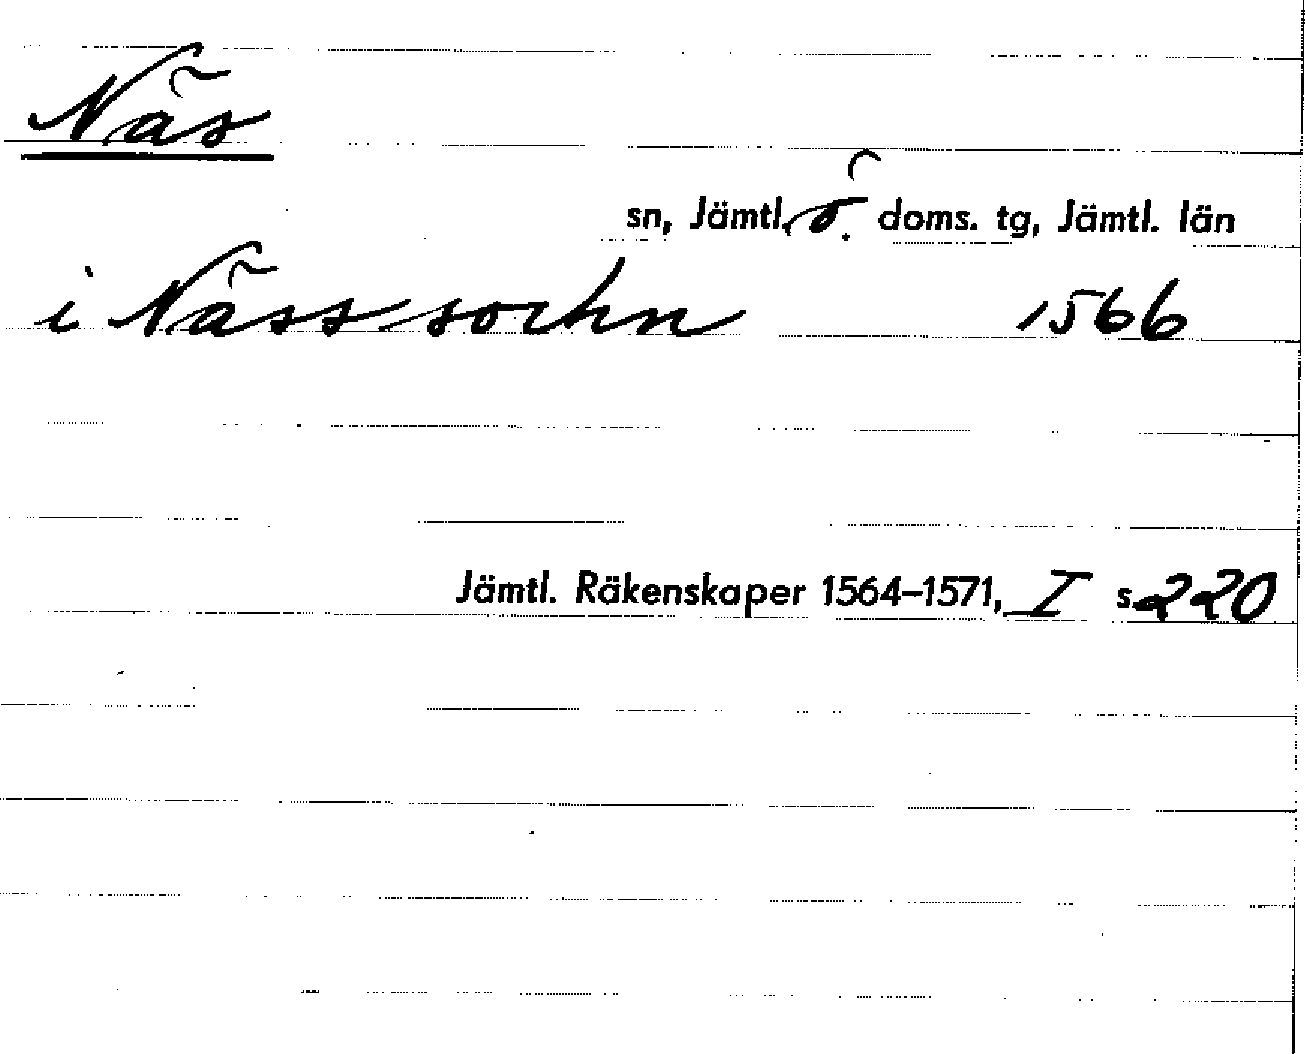 Näs
sn, Jämtl. ö. doms. tg, Jämtl. län
i Näss sochn 1566
Jämtl. Räkenskaper 1564–1571, I s. 220